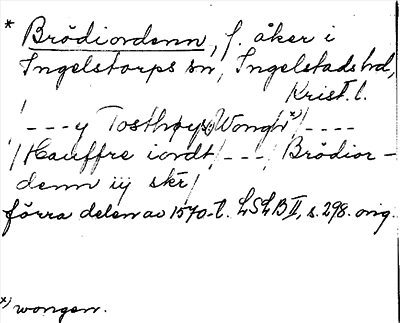 * Brödiordenn, f. åker i
Ingelstorps sn, Ingelstads hd,
Krist. l.
/---y Tosthøys Wongh x)/----
/Hauffre iordt/---/Brödior-
denn iij skr/
förra delen av 1570-t. LSLB II, s. 298. orig.
x) wongen.